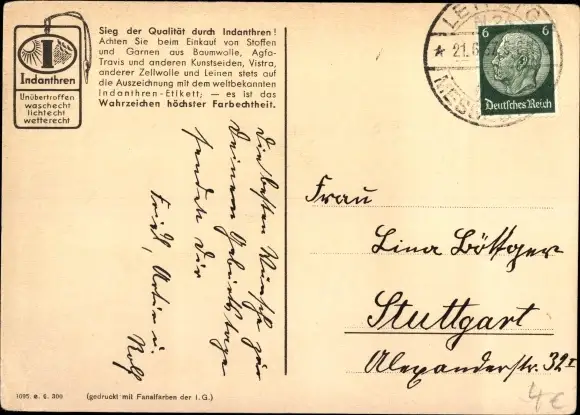 Indanthren
Unübertroffen
waschecht
lichtecht
wetterecht
Sieg der Qualität durch Indanthren!
Achten Sie beim Einkauf von Stoffen
und Garnen aus Baumwolle, Agfa-
Travis und anderen Kunstseiden, Vistra,
anderer Zellwolle und Leinen stets auf
die Auszeichnung mit dem weltbekannten
Indanthren-Etikett; — es ist das
Wahrzeichen höchster Farbechtheit.
Die besten Wünsche zum
Deinem Geburtstage
senden Dir
Fritz, u.
Rolf
6 6
Deutsches Reich
Frau
Lina Böttger
Stuttgart
Alexanderstr. 32 I
1095. e. 6. 300
(gedruckt mit Fanalfarben der I.G.)
4€